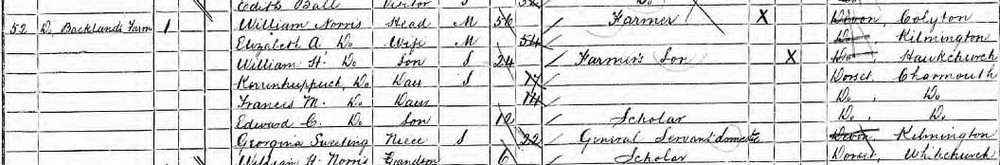 Edith Ball Visitor S
52 Do Backlands Farm 1 William Norris Head M 56 Farmer X Devon, Colyton
Elizabeth A. Do Wife M 54 Do Kilmington
William H. Do Son S 24 Farmer's Son X Do Hawkchurch
Do Daur S 17 Dorset, Charmouth
Francis M. Do Daur 14 Do, Do
Edward C. Do Son 12 Scholar Do, Do
Georgina Sweeting Niece S 22 General Servant domestic Devon Kilmington
William H. Norris Grandson 6 Scholar Dorset, Whitchurch